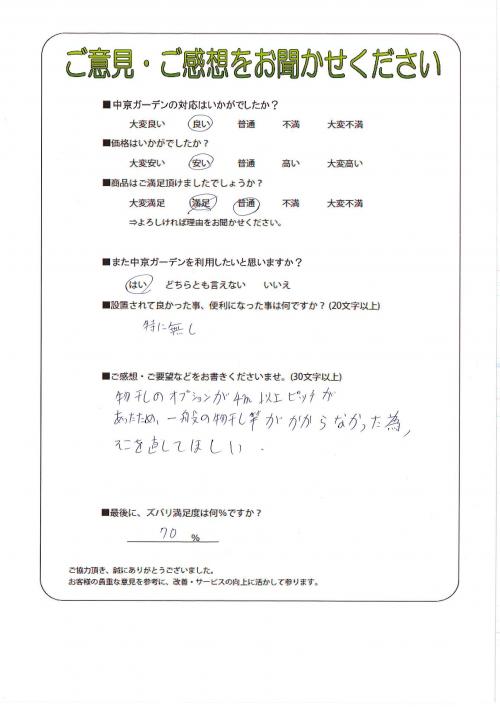 ご意見・ご感想をお聞かせください
■中京ガーデンの対応はいかがでしたか？
大変良い 良い 普通 不満 大変不満
■価格はいかがでしたか？
大変安い 安い 普通 高い 大変高い
■商品はご満足頂けましたでしょうか？
大変満足 満足 普通 不満 大変不満
⇒よろしければ理由をお聞かせください。
■また中京ガーデンを利用したいと思いますか？
はい どちらとも言えない いいえ
■設置されて良かった事、便利になった事は何ですか？(20文字以上)
特に無し
■ご感想・ご要望などをお書きくださいませ。(30文字以上)
物干しのオプションが4m以上ピッチが
あったため、一般の物干し竿がかからなかった為、
そこを直してほしい.
■最後に、ズバリ満足度は何％ですか？
70 %
ご協力頂き、誠にありがとうございました。
お客様の貴重な意見を参考に、改善・サービスの向上に活かして参ります。